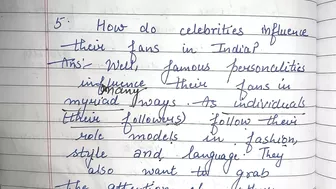 5. How do celebrities influence
their fans in India?
Ans:- Well, famous personcelities
influence their fans in
many
myriad ways. As individuals
(their followers) follow their
role models in fashion,
style and language. They
also want to grab
the attention of